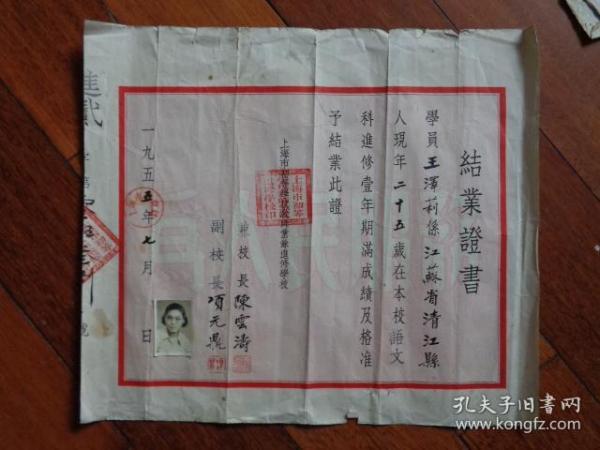 結業證書
學員王澤莉係江蘇省清江縣
人現年二十五歲在本校語文
科進修壹年期滿成績及格准
予結業此證
上海市初等教育業餘進修學校
校長陳雲濤
副校長項元鼎
一九五五年七月 日
進貳字第
號
孔夫子旧书网
www.kongfz.com